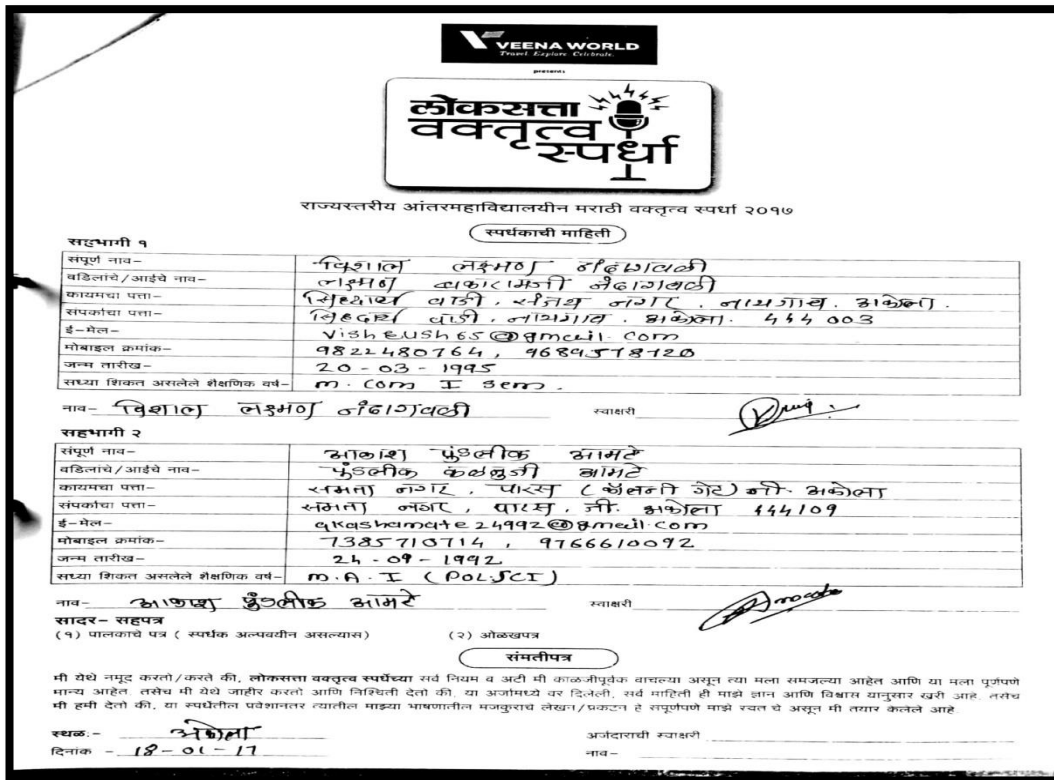 VEENA WORLD
Travel. Explore. Celebrate.
presents
लोकसत्ता
वक्तृत्व
स्पर्धा
राज्यस्तरीय आंतरमहाविद्यालयीन मराठी वक्तृत्व स्पर्धा २०१७
स्पर्धकाची माहिती
सहभागी १
संपूर्ण नाव- विशाल लक्ष्मण नंदागवळी
वडिलांचे/आईचे नाव- लक्ष्मण नंदागवळी
कायमचा पत्ता- सिध्दार्थ वाडी, संजय नगर, नायगाव, अकोला.
संपर्काचा पत्ता- सिध्दार्थ वाडी, नायगाव, अकोला. 444 003
ई-मेल- @gmail.com
मोबाइल क्रमांक- 9822480764,
जन्म तारीख- 20-03-1995
सध्या शिकत असलेले शैक्षणिक वर्ष- M.Com I Sem.
नाव- विशाल लक्ष्मण नंदागवळी स्वाक्षरी
सहभागी २
संपूर्ण नाव- आकाश पुंडलीक आमटे
वडिलांचे/आईचे नाव- पुंडलीक आमटे
कायमचा पत्ता- समता नगर, पारस (कॅालनी गेट) जी. अकोला
संपर्काचा पत्ता- समता नगर, पारस, जी. अकोला 444109
ई-मेल- akashamate24992@gmail.com
मोबाइल क्रमांक- 7385710714, 9766610092
जन्म तारीख- 24-09-1992
सध्या शिकत असलेले शैक्षणिक वर्ष- M.A.I (POL.SCI)
नाव- आकाश पुंडलीक आमटे स्वाक्षरी
सादर- सहपत्र
(१) पालकाचे पत्र ( स्पर्धक अल्पवयीन असल्यास) (२) ओळखपत्र
संमतीपत्र
मी येथे नमूद करतो/करते की, लोकसत्ता वक्तृत्व स्पर्धेच्या सर्व नियम व अटी मी काळजीपूर्वक वाचल्या असून त्या मला समजल्या आहेत आणि या मला पूर्णपणे
मान्य आहेत. तसेच मी येथे जाहीर करतो आणि निश्चिती देतो की, या अर्जामध्ये वर दिलेली, सर्व माहिती ही माझे ज्ञान आणि विश्वास यानुसार खरी आहे. तसेच
मी हमी देतो की, या स्पर्धेतील प्रवेशानंतर त्यातील माझ्या भाषणातील मजकुराचे लेखन/प्रकटन हे संपूर्णपणे माझे स्वतःचे असून मी तयार केलेले आहे.
स्थळ:- अकोला अर्जदाराची स्वाक्षरी
दिनांक - 18-01-17 नाव-